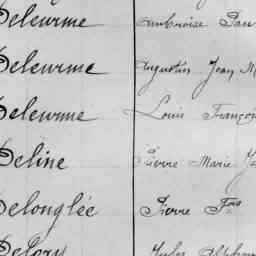 Deleurme Ambroise
Deleurme Augustin Jean M
Deleurme Louis Franço
Deline Pierre Marie
Delonglée Pierre Fois
Delory Jules Alphon